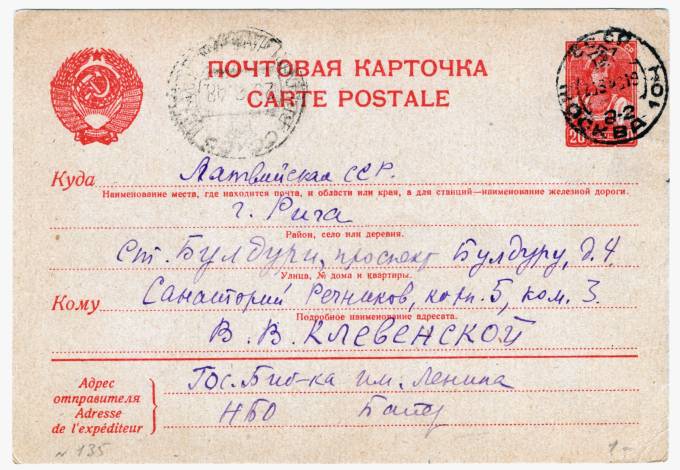 ПОЧТОВАЯ КАРТОЧКА
CARTE POSTALE
20
МОСКВА
Куда Латвийская ССР.
Наименование места, где находится почта, и области или края, а для станций—наименование железной дороги.
г. Рига
Район, село или деревня.
Ст. Булдури, проспект Булдуру, д. 4
Улица, № дома и квартиры.
Кому Санаторий Речников, корп. 5, ком. 3.
Подробное наименование адресата.
В. В. Клевенской
Адрес отправителя
Adresse de l'expéditeur
Гос. Биб-ка им. Ленина
НБО
№ 135
1-